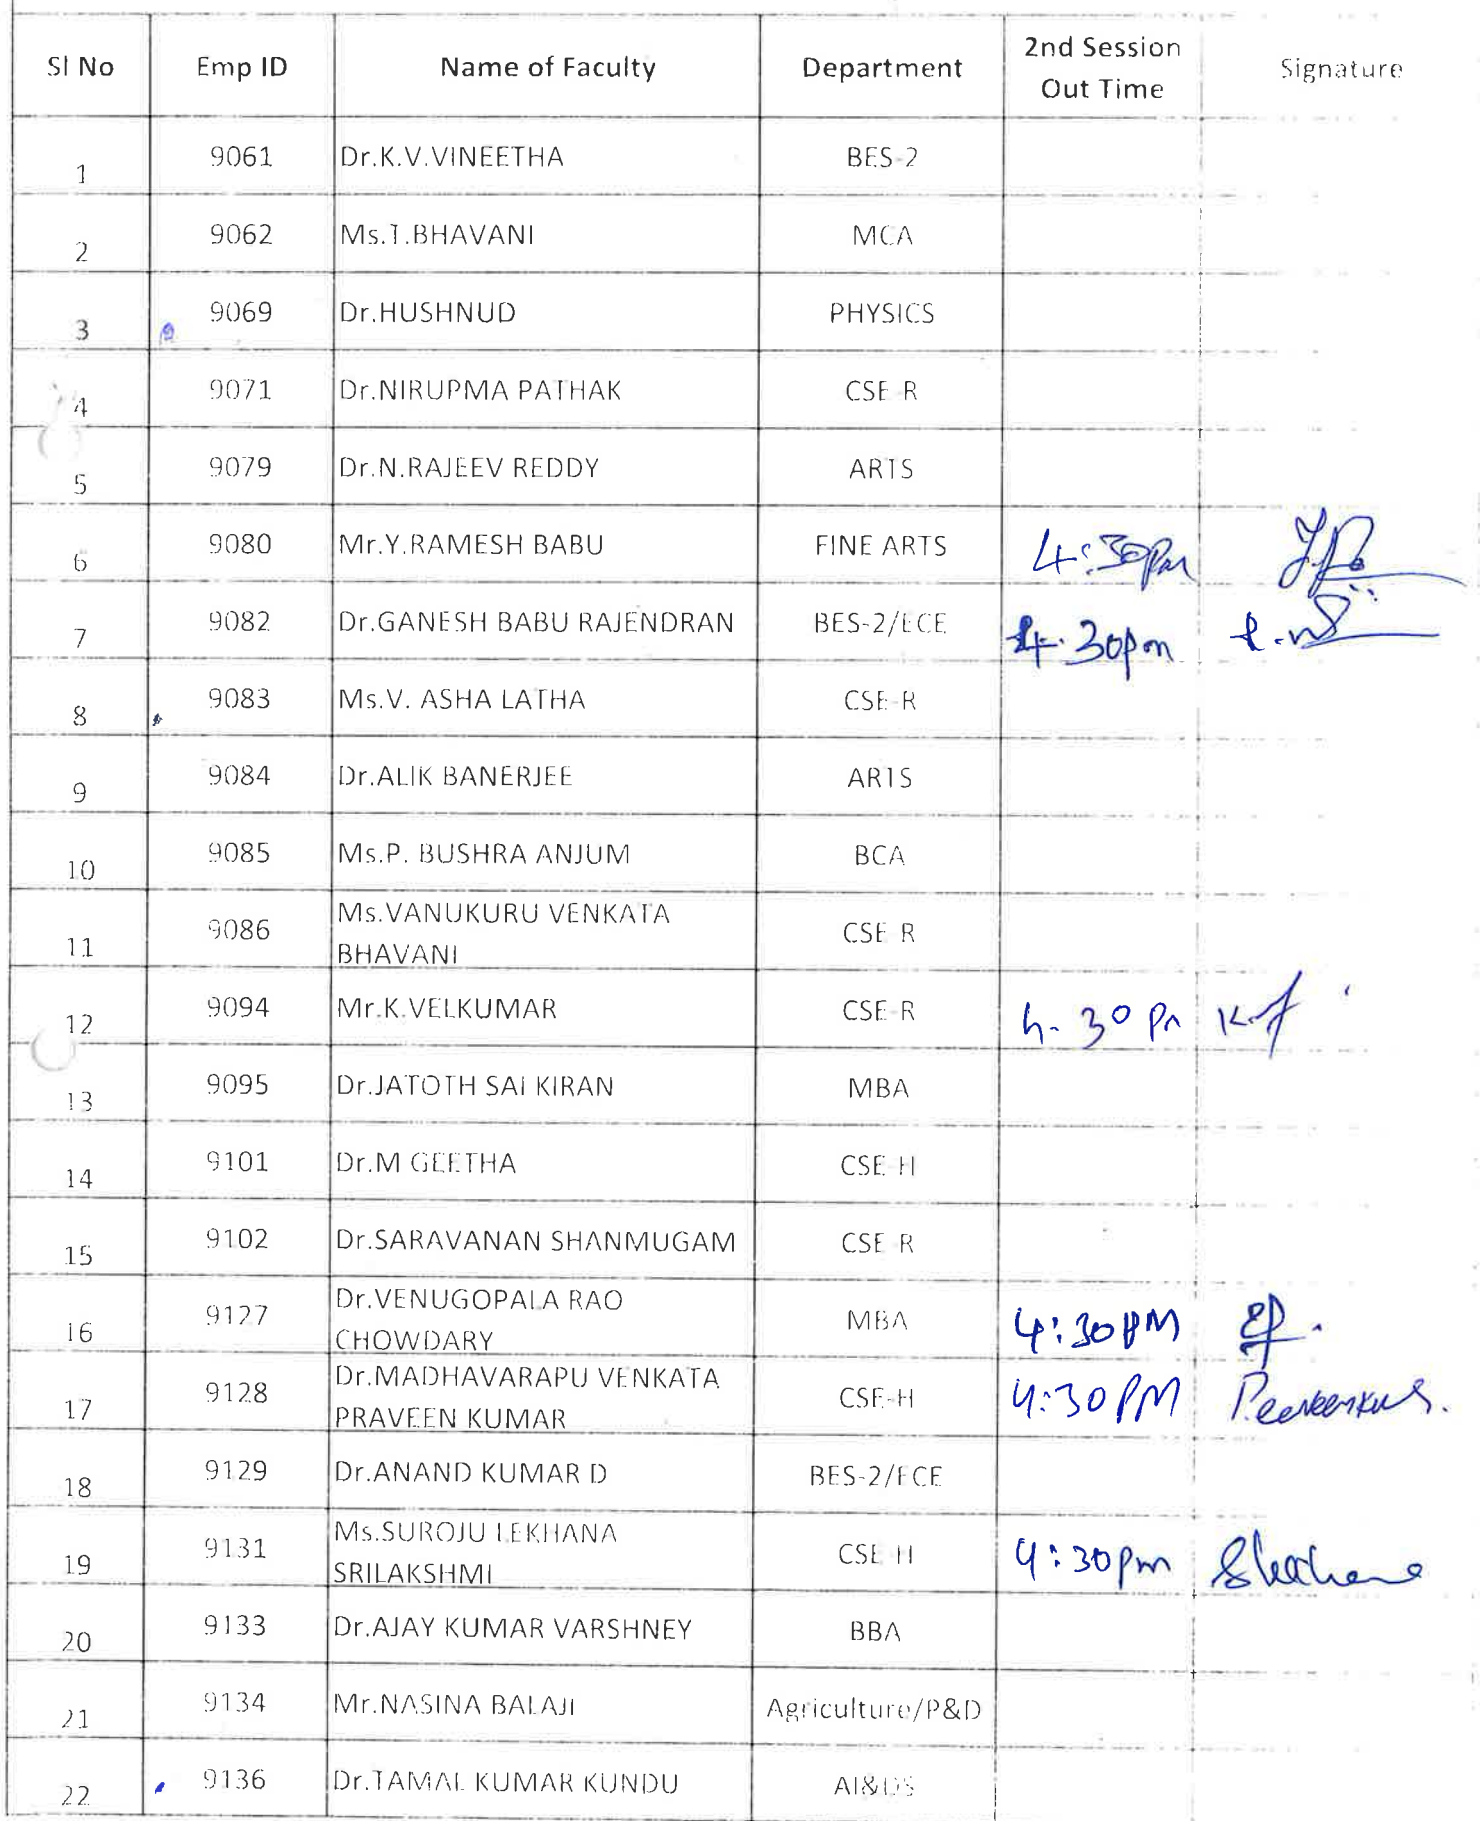 Sl No Emp ID Name of Faculty Department 2nd Session Out Time Signature
1 9061 Dr.K.V.VINEETHA BES-2
2 9062 Ms.T.BHAVANI MCA
3 9069 Dr.HUSHNUD PHYSICS
4 9071 Dr.NIRUPMA PATHAK CSE-R
5 9079 Dr.N.RAJEEV REDDY ARTS
6 9080 Mr.Y.RAMESH BABU FINE ARTS 4:30pm
7 9082 Dr.GANESH BABU RAJENDRAN BES-2/ECE 4.30pm
8 9083 Ms.V. ASHA LATHA CSE-R
9 9084 Dr.ALIK BANERJEE ARTS
10 9085 Ms.P. BUSHRA ANJUM BCA
11 9086 Ms.VANUKURU VENKATA
BHAVANI CSE-R
12 9094 Mr.K.VELKUMAR CSE-R 4-30 Pm
13 9095 Dr.JATOTH SAI KIRAN MBA
14 9101 Dr.M GEETHA CSE-H
15 9102 Dr.SARAVANAN SHANMUGAM CSE-R
16 9127 Dr.VENUGOPALA RAO
CHOWDARY MBA 4:30PM
17 9128 Dr.MADHAVARAPU VENKATA
PRAVEEN KUMAR CSE-H 4:30PM
18 9129 Dr.ANAND KUMAR D BES-2/ECE
19 9131 Ms.SUROJU LEKHANA
SRILAKSHMI CSE-H 4:30pm
20 9133 Dr.AJAY KUMAR VARSHNEY BBA
21 9134 Mr.NASINA BALAJI Agriculture/P&D
22 9136 Dr.TAMAL KUMAR KUNDU AI&DS